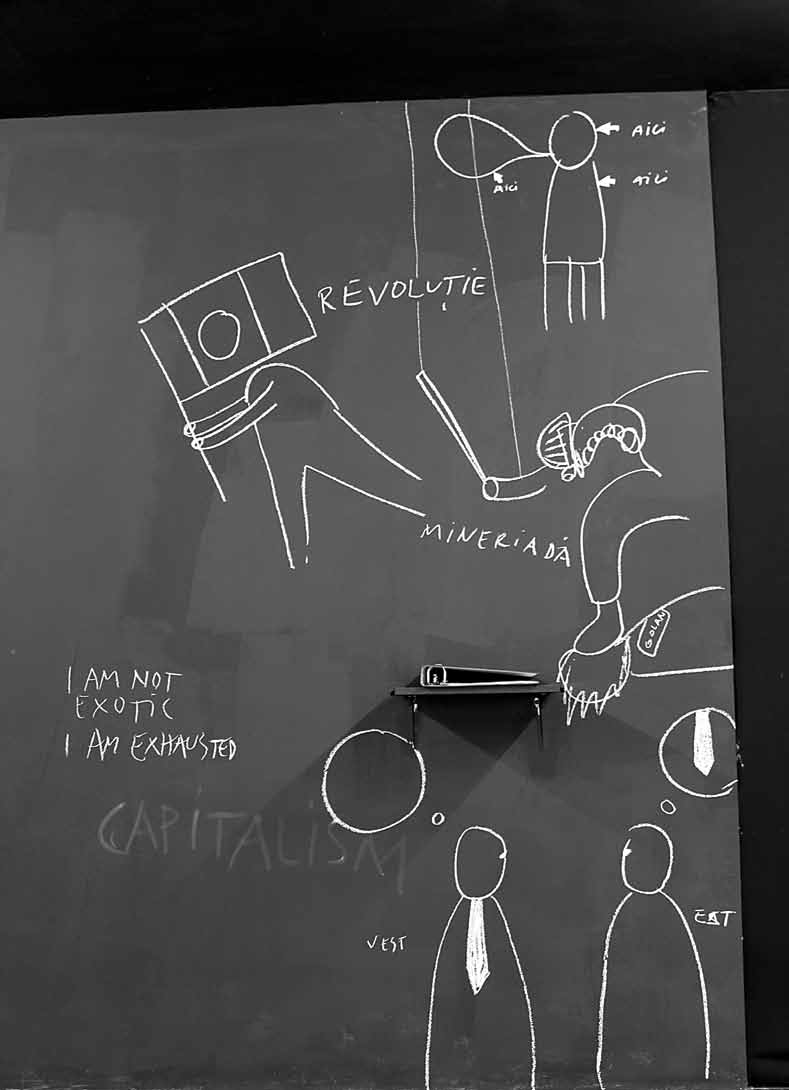 AICI
AICI
AICI
REVOLUȚIE
MINERIADĂ
GOLAN
I AM NOT
EXOTIC
I AM EXHAUSTED
CAPITALISM
VEST
EST